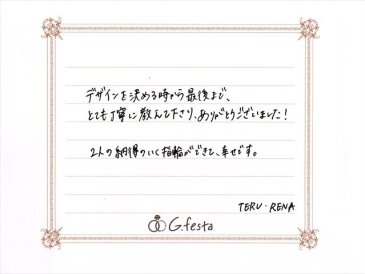 デザインを決める時から最後まで、
とても丁寧に教えて下さり、ありがとうございました!
2人の納得のいく指輪ができて、幸せです。
TERU・RENA
G.festa